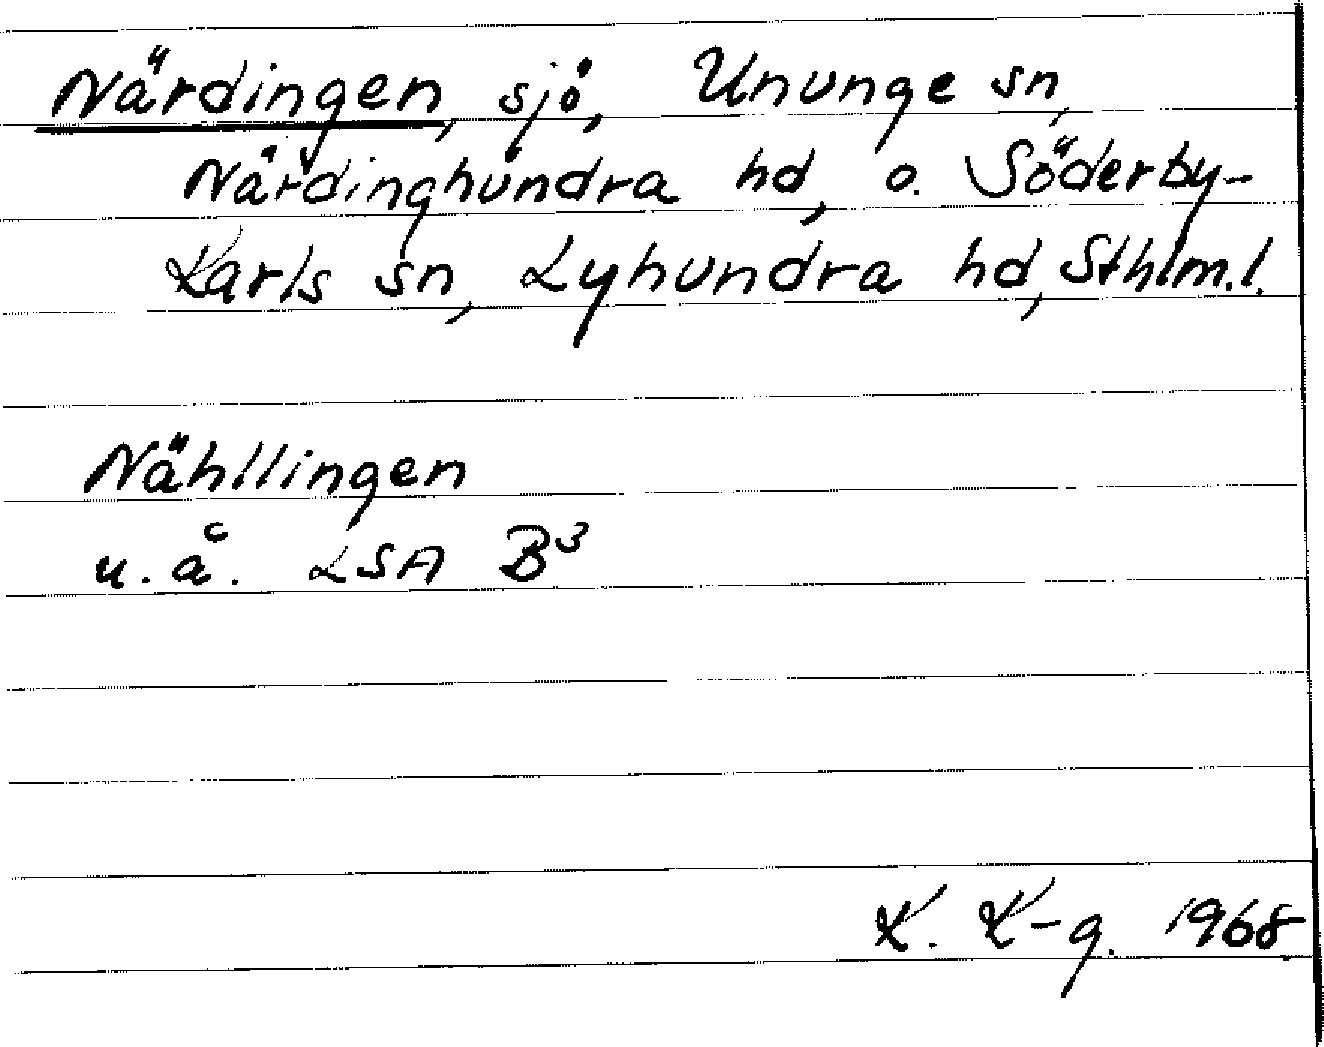 Närdingen, sjö, Ununge sn,
Närdinghundra hd, o. Söderby-
Karls sn, Lyhundra hd, Sthlm.l.
Nähllingen
u.å. LSA B3
K. K-g. 1968